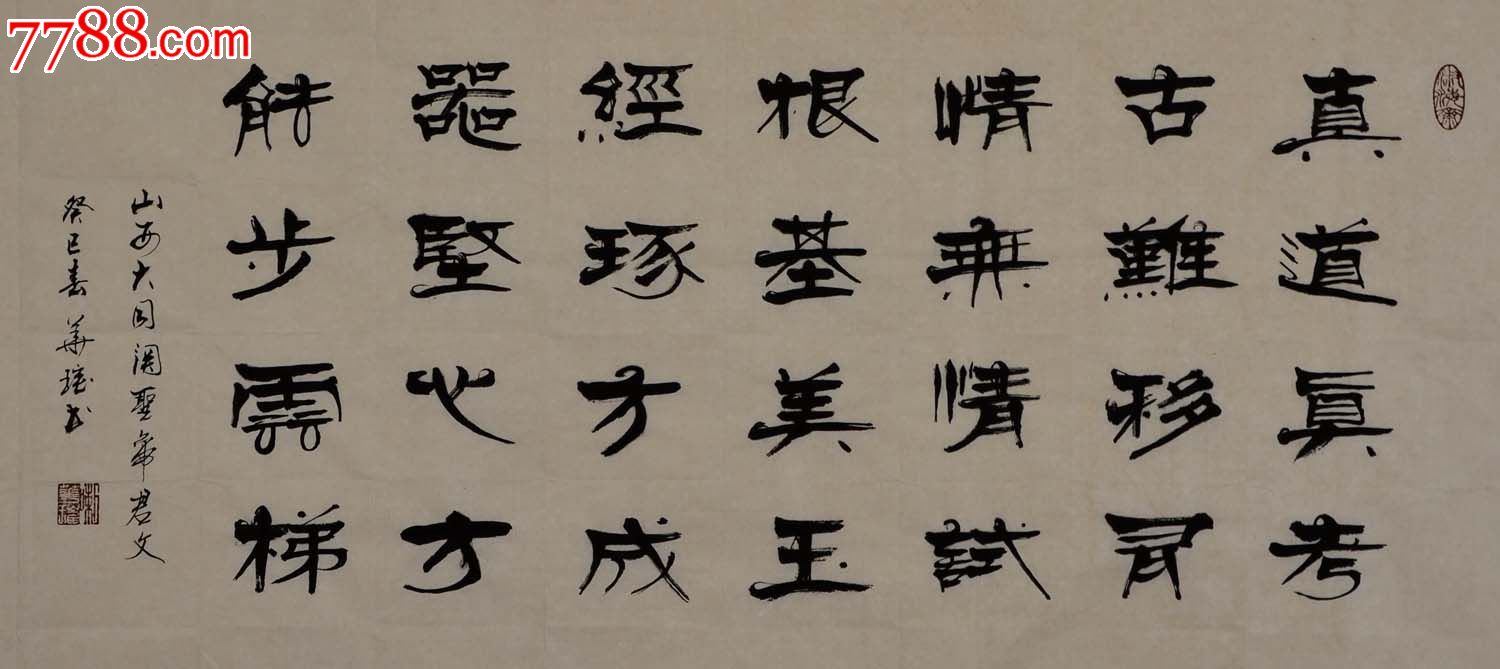 7788.com
真道真考
古難移司
情無情試
根基美玉
經琢方成
器堅心方
能步雲梯
山西大同關聖帝君文
癸巳春 華瑞书